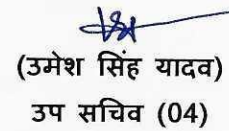 (उमेश सिंह यादव)
उप सचिव (04)